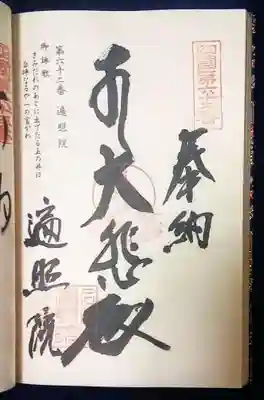 奉納
大悲殿
遍照院
第六十二番　遍照院
御詠歌
さみだれのあとに出でたる玉の井は
白坪なるや一の宮かわ